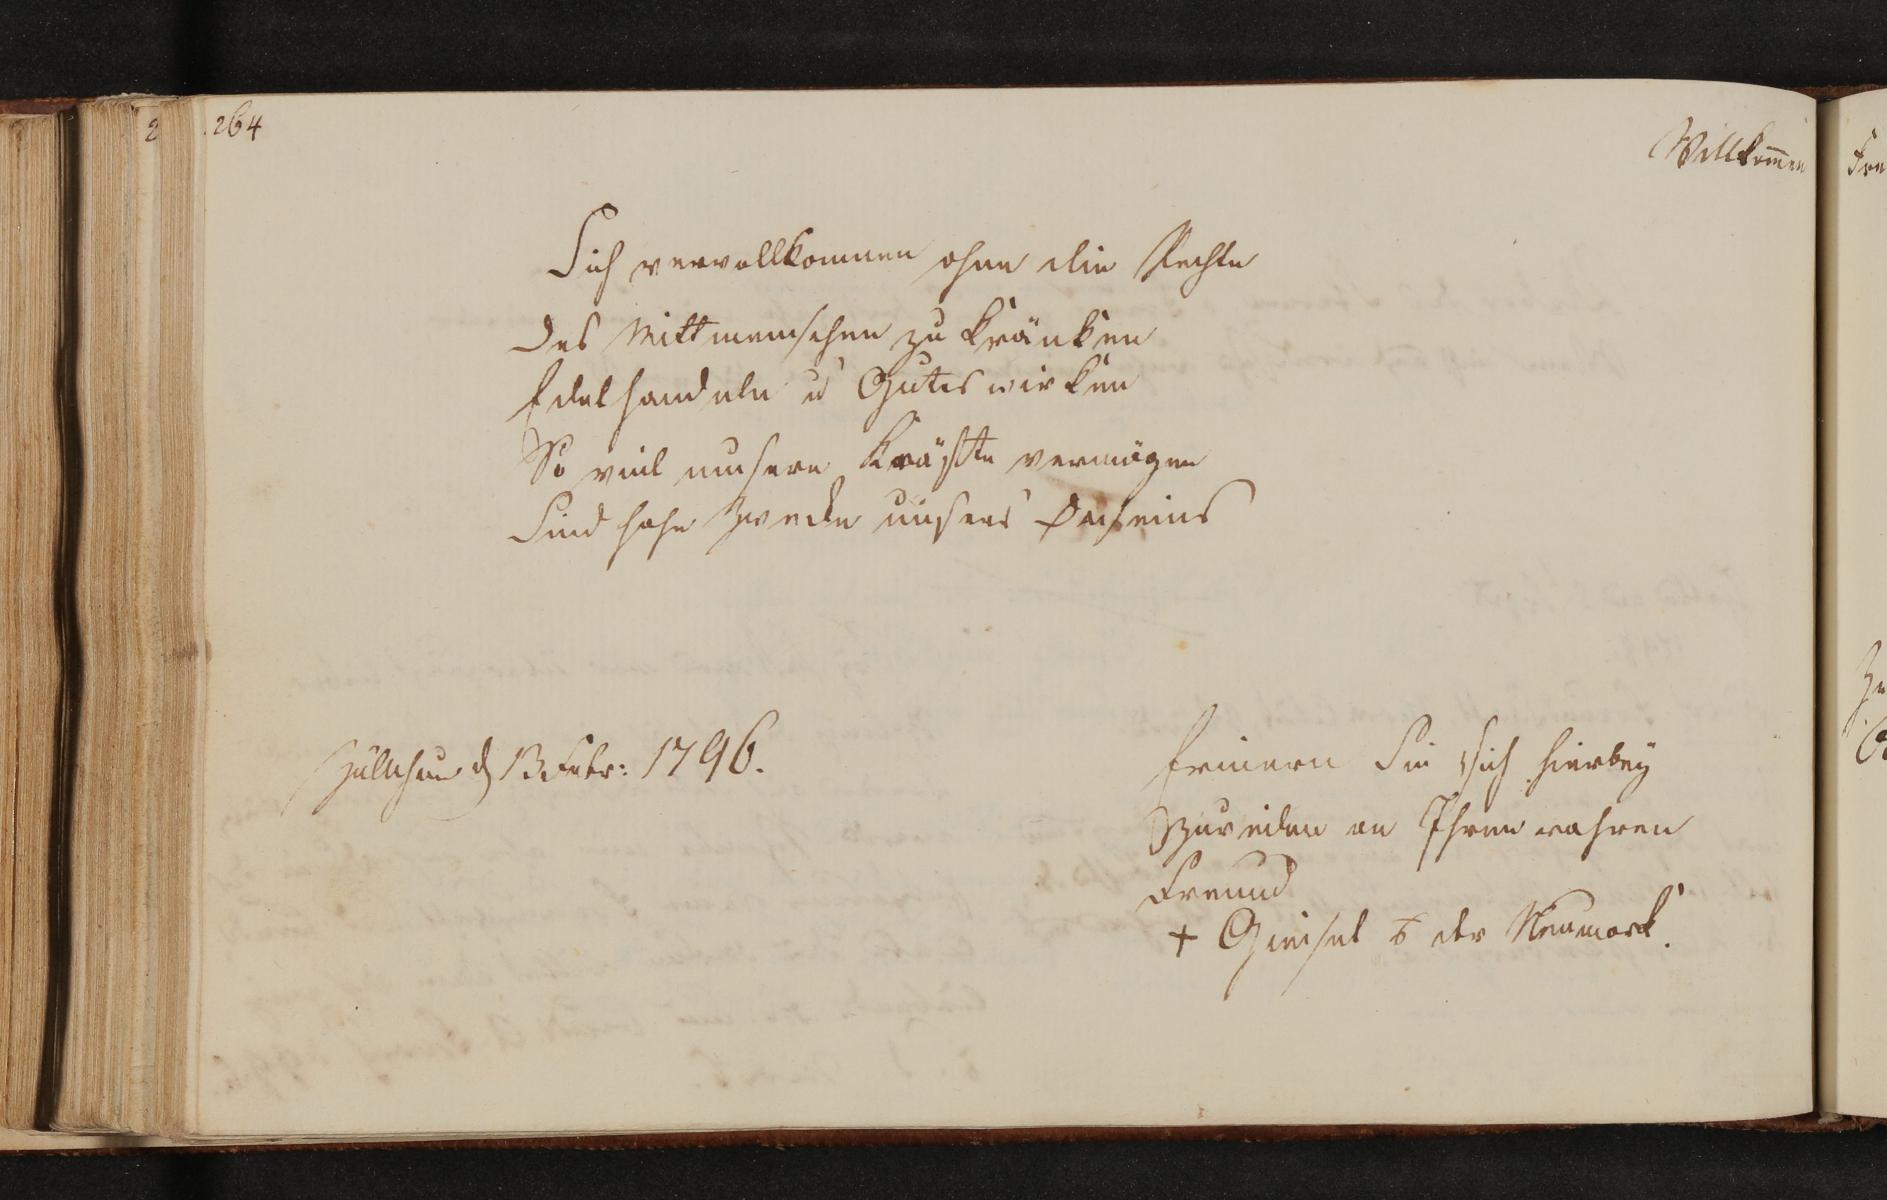 264
Willkom̄en
Sich vervollkommen ohne die Rechte
Des Mittmenschen zu kränken
Edel handeln u Gutes wirken
So viel unsere Kräffte vermögen
Sind hohe Zwecke unsers Daseins
Züllichau d 13 Febr: 1796.
Erinnern Sie sich hierbey
Zuweilen an Ihren wahren
Freund
+ Giensel der Neumark.